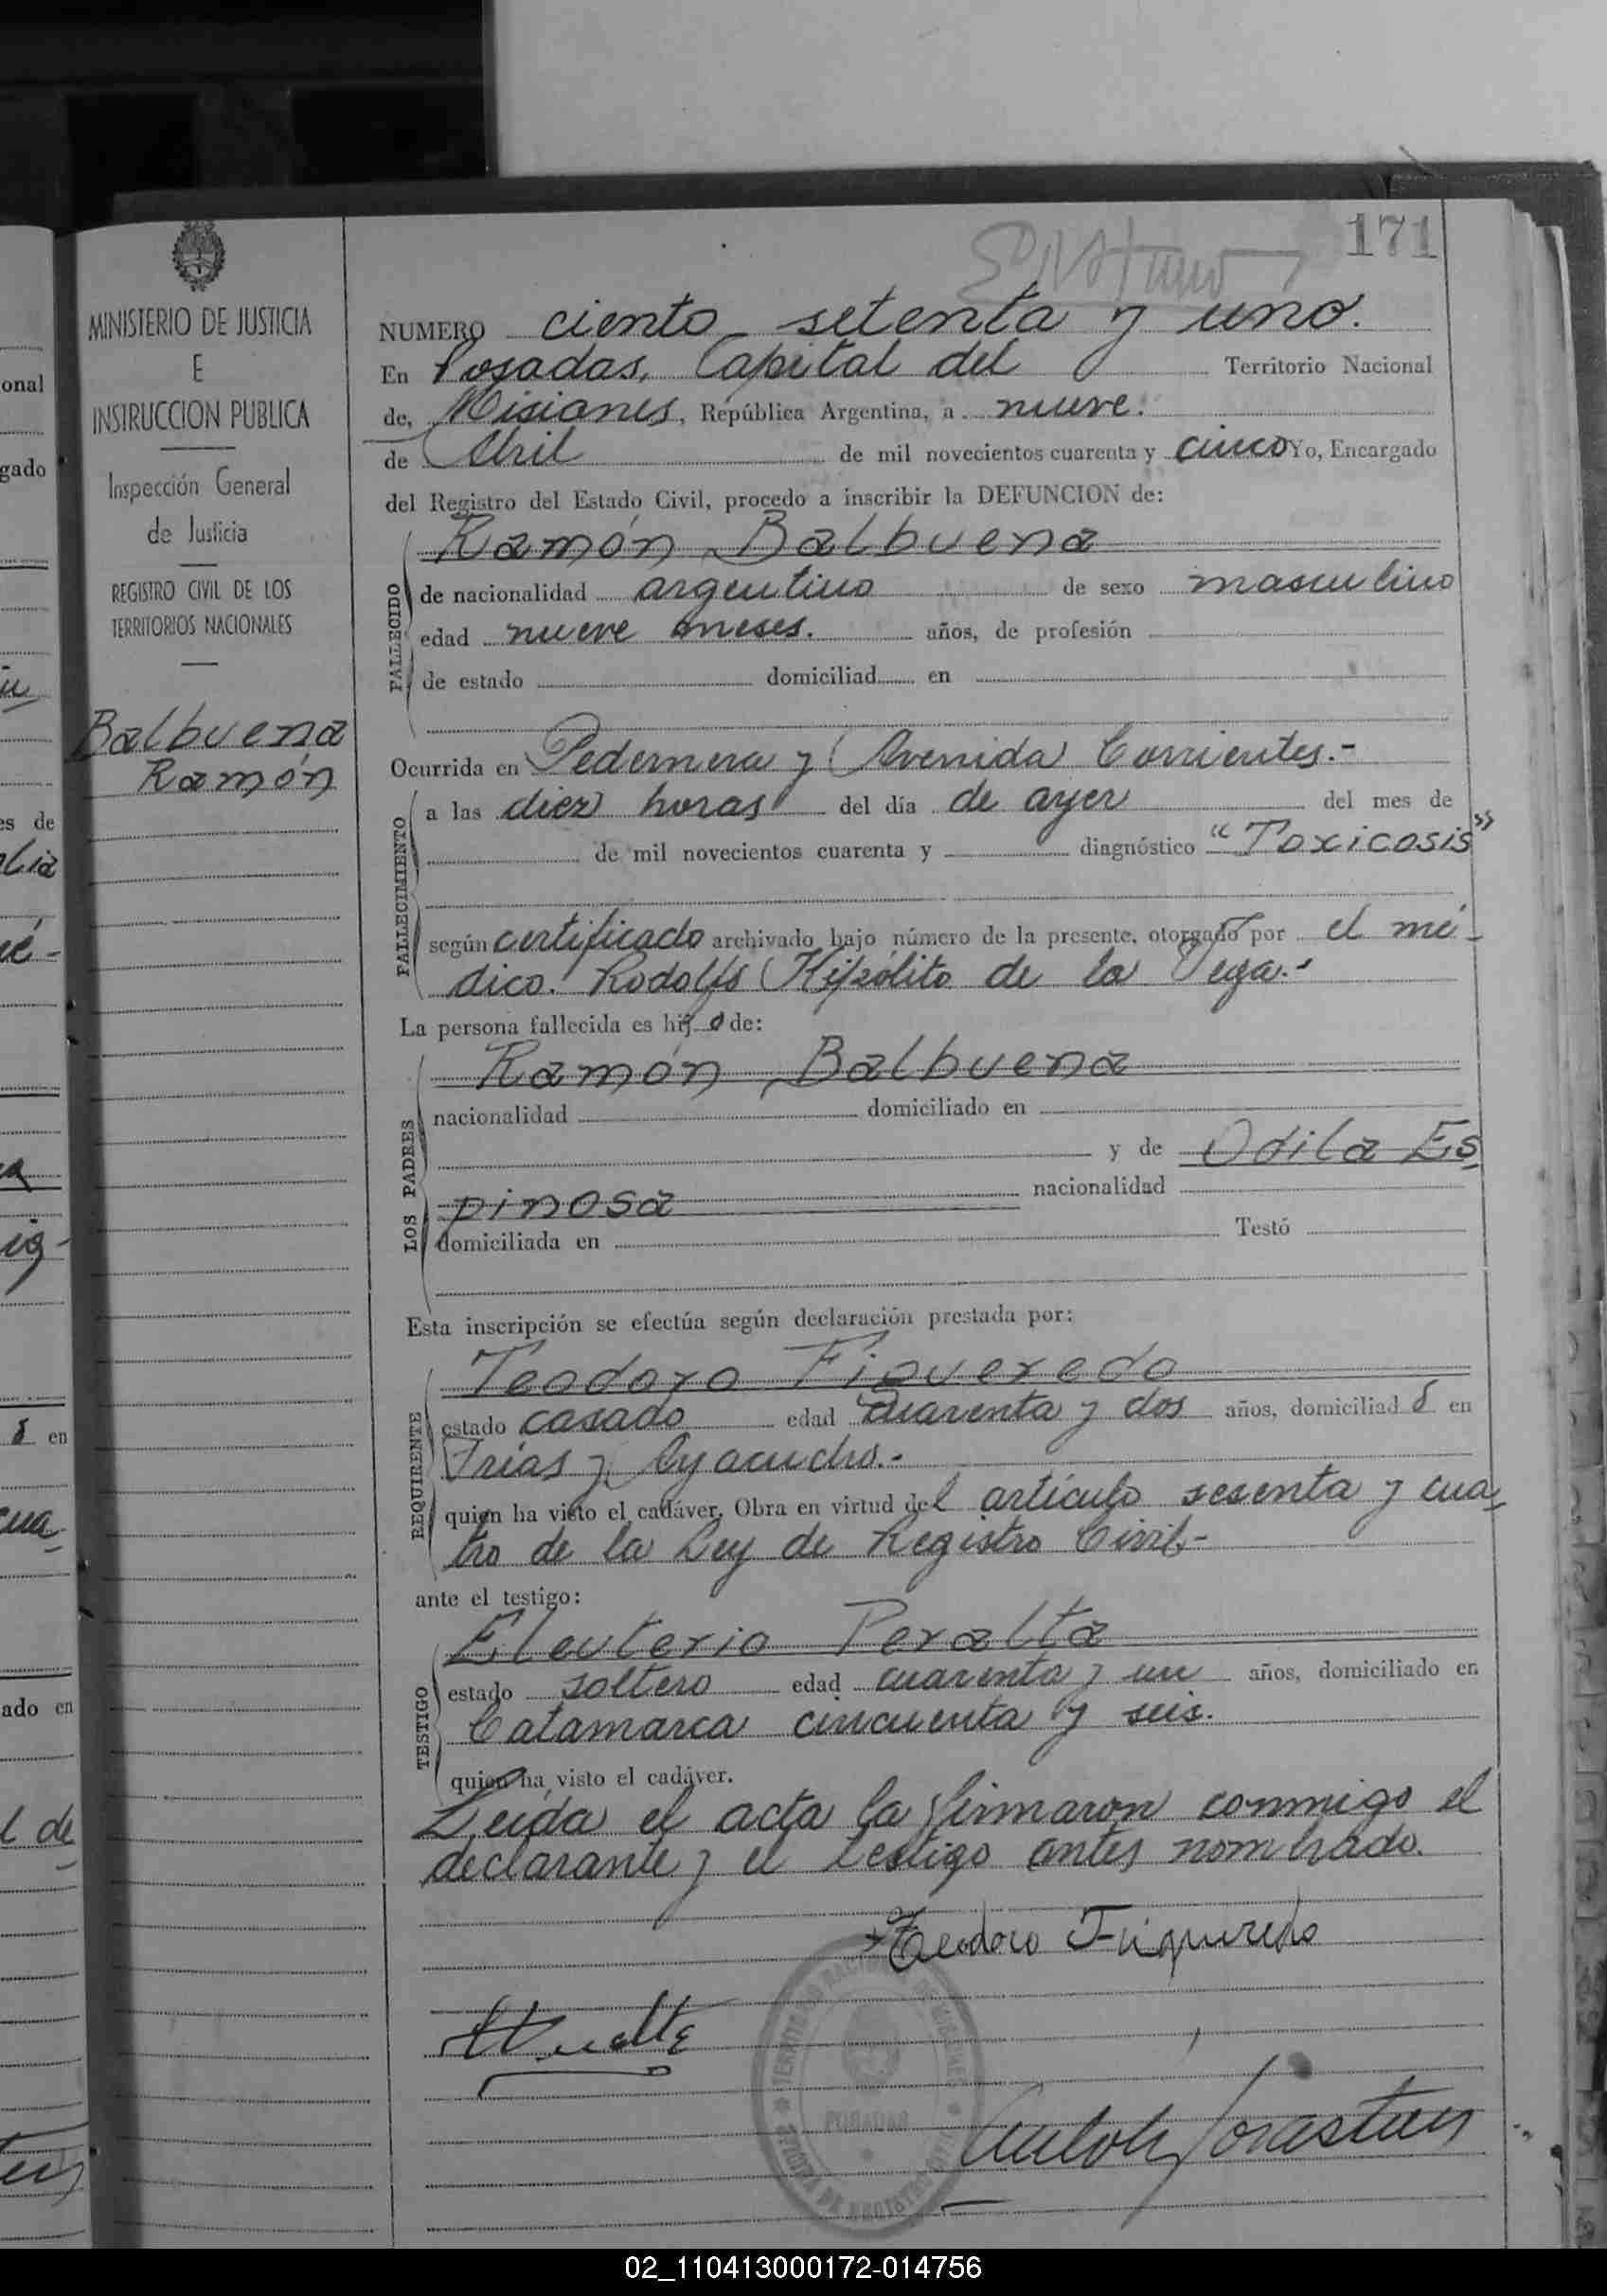 171
NUMERO ciento setenta y uno.
En Posadas, Capital del Territorio Nacional
de, Misiones, República Argentina, a nueve.
de Abril de mil novecientos cuarenta y cinco Yo, Encargado
del Registro del Estado Civil, procedo a inscribir la DEFUNCION de:
Ramón Balbuena
de nacionalidad argentino de sexo masculino
edad nueve meses. años, de profesión
de estado domiciliad en
FALLECIDO
Ocurrida en Pedernera y Avenida Corrientes.-
a las diez horas del día de ayer del mes de
de mil novecientos cuarenta y diagnóstico "Toxicosis"
según certificado archivado bajo número de la presente, otorgado por el mé-
dico. Rodolfo Hipólito de la Vega.-
FALLECIMIENTO
La persona fallecida es hijo de:
Ramón Balbuena
nacionalidad domiciliado en
y de Odila Es
pinosa nacionalidad
domiciliada en Testó
LOS PADRES
Esta inscripción se efectúa según declaración prestada por:
Teodoro Figueredo
estado casado edad cuarenta y dos años, domiciliado en
Frías y Ayacucho.-
quien ha visto el cadáver. Obra en virtud del artículo sesenta y cua-
tro de la Ley de Registro Civil-
REQUIRENTE
ante el testigo:
Eleuterio Peralta
estado soltero edad cuarenta y un años, domiciliado en
Catamarca cincuenta y seis.
quien ha visto el cadáver.
TESTIGO
Leída el acta la firmaron conmigo el
declarante y el testigo antes nombrado.
Teodoro Figueredo
MINISTERIO DE JUSTICIA
E
INSTRUCCION PUBLICA
Inspección General
de Justicia
REGISTRO CIVIL DE LOS
TERRITORIOS NACIONALES
Balbuena
Ramón
onal
gado
es de
en
cua
ado en
l de
02_110413000172-014756